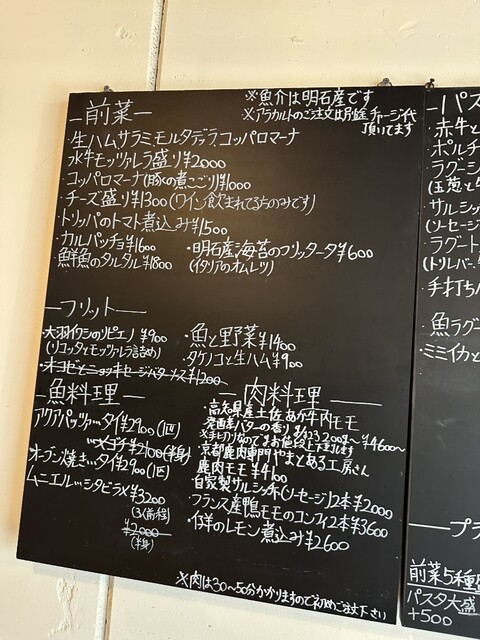 ー前菜ー
※魚介は明石産です
※アラカルトのご注文は別途チャージ代
頂いてます
・生ハムサラミ、モルタデッラコッパロマーナ
水牛モッツァレラ盛り¥2000
・コッパロマーナ(豚の煮こごり)¥1000
・チーズ盛り¥1300(ワイン飲まれてる方のみです)
・トリッパのトマト煮込み¥1500
・カルパッチョ¥1600
・明石産海苔のフリッタータ¥600
(イタリアのオムレツ)
・鮮魚のタルタル¥1800
ーフリットー
・大羽イワシのリピエノ¥900
(リコッタとモッツァレラ詰め)
・魚と野菜¥1400
・タケノコと生ハム¥900
ー魚料理ー
アクアパッツァ…タイ¥2900(1匹)
オーブン焼き…タイ¥2900(1匹)
ムニエル…シタビラメ¥3200
¥2000
(半身)
ー肉料理ー
・高知県産土佐あか牛内モモ
・京都鹿肉専門やまとある工房さん
鹿肉モモ¥4100
・自家製サルシッチャ(ソーセージ)2本¥2000
・フランス産鴨モモのコンフィ2本¥3600
・仔羊のレモン煮込み¥2600
※肉は30〜50分かかりますので初めご注文下さい
ーパス
・赤牛と
・ポルチ
・ラグー
(玉葱と
・サルシッ
(ソーセー
・ラグー
(トリレバー
・手打ち
・魚ラグ
・ミミイカと
ープ
前菜5種
パスタ大盛
+500